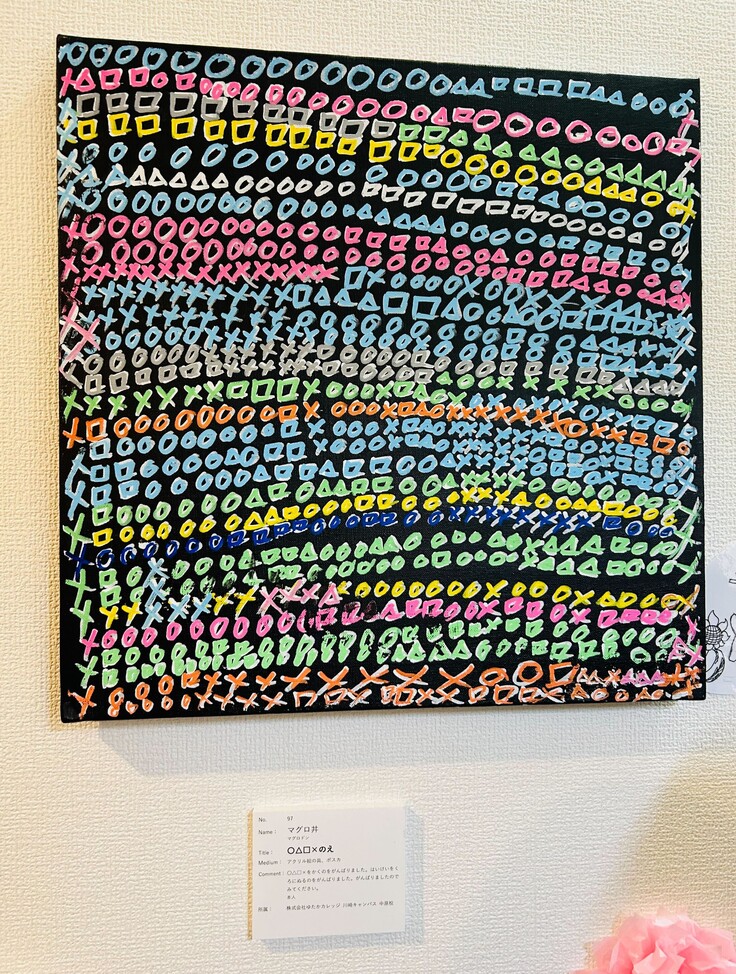 No. 97
Name: マグロ丼
マグロドン
Title: ○△□×のえ
Medium: アクリル絵の具、ポスカ
Comment: ○△□×をかくのをがんばりました。はいけいをくろにぬるのをがんばりました。がんばりましたので
みてください。
本人
所属: 株式会社ゆたかカレッジ 川崎キャンパス 中原校